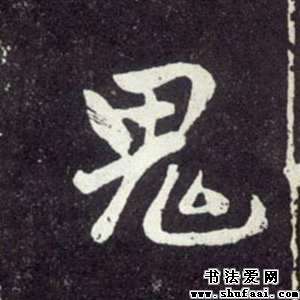 鬼
书法爱网
www.shufaai.com